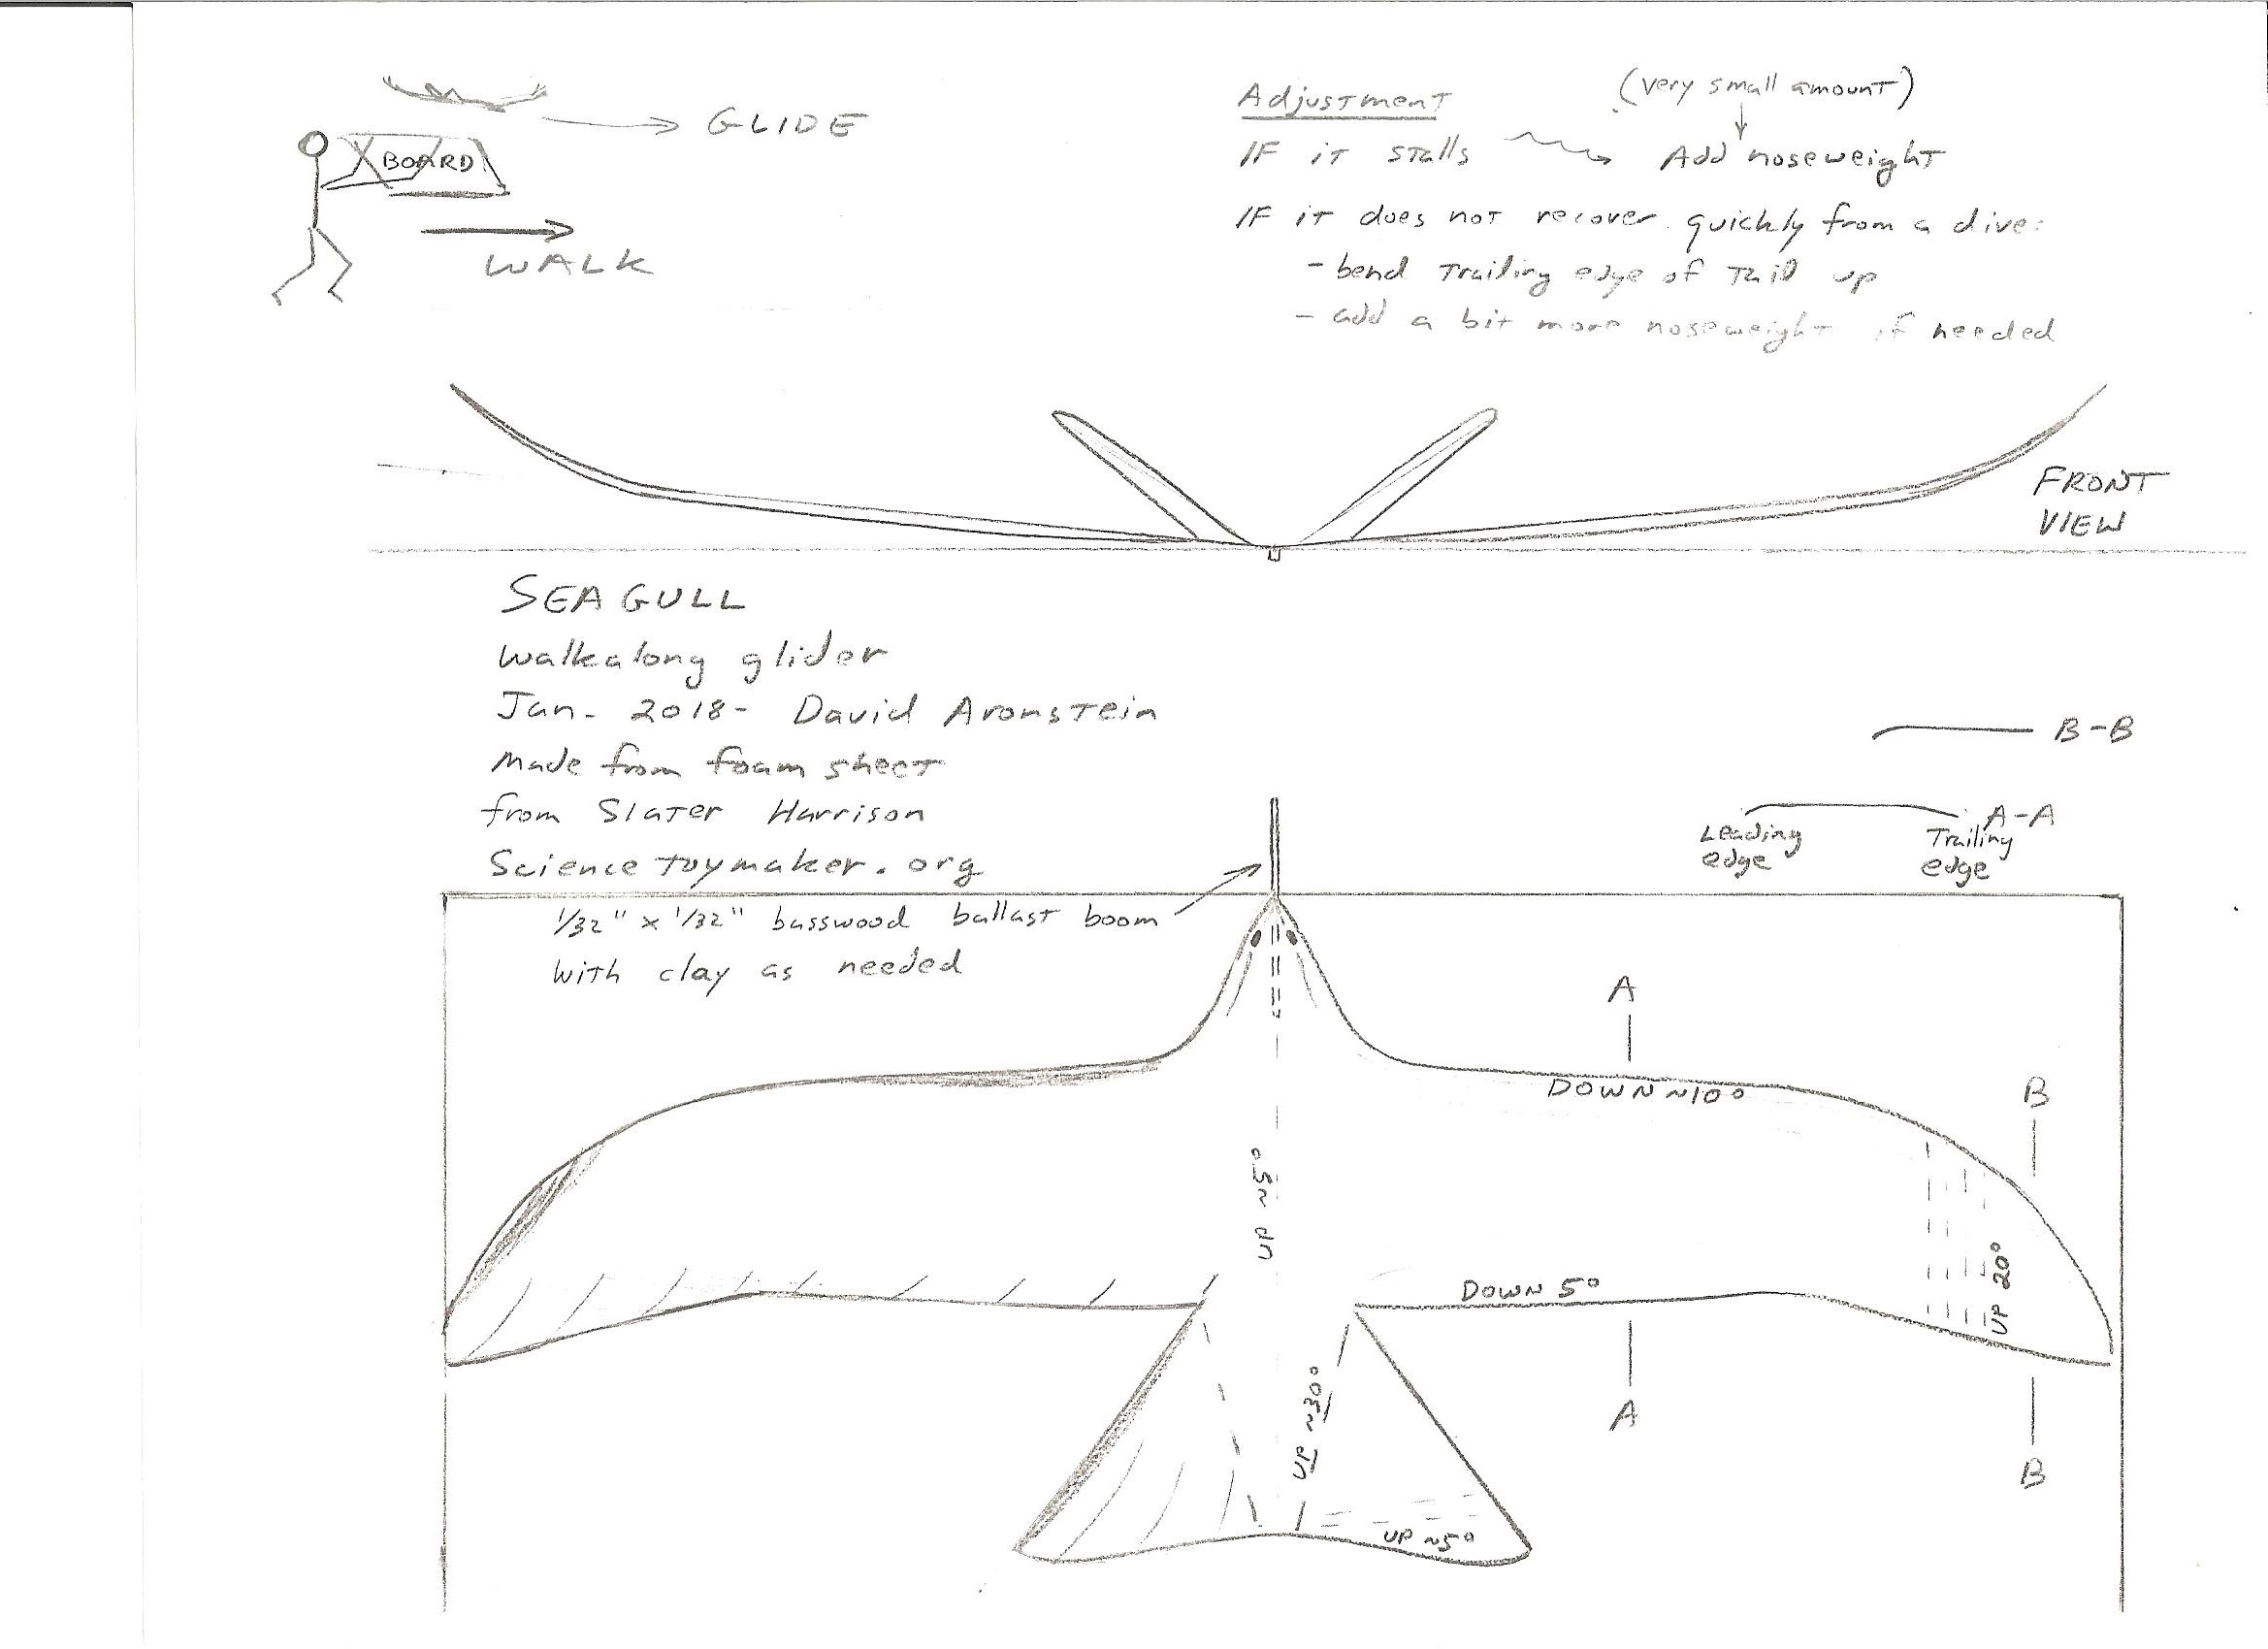 GLIDE
BOARD
WALK
Adjustment
(very small amount)
IF it stalls
Add noseweight
IF it does not recover quickly from a dive:
- bend trailing edge of tail up
- add a bit more noseweight if needed
FRONT
VIEW
SEAGULL
walkalong glider
Jan. 2018 - David Aronstein
Made from foam sheet
from Slater Harrison
Sciencetoymaker.org
B-B
A-A
Leading
edge
Trailing
edge
1/32" x 1/32" basswood ballast boom
with clay as needed
A
DOWN ~10°
B
UP ~5°
DOWN 5°
UP 20°
UP ~30°
A
B
UP ~5°